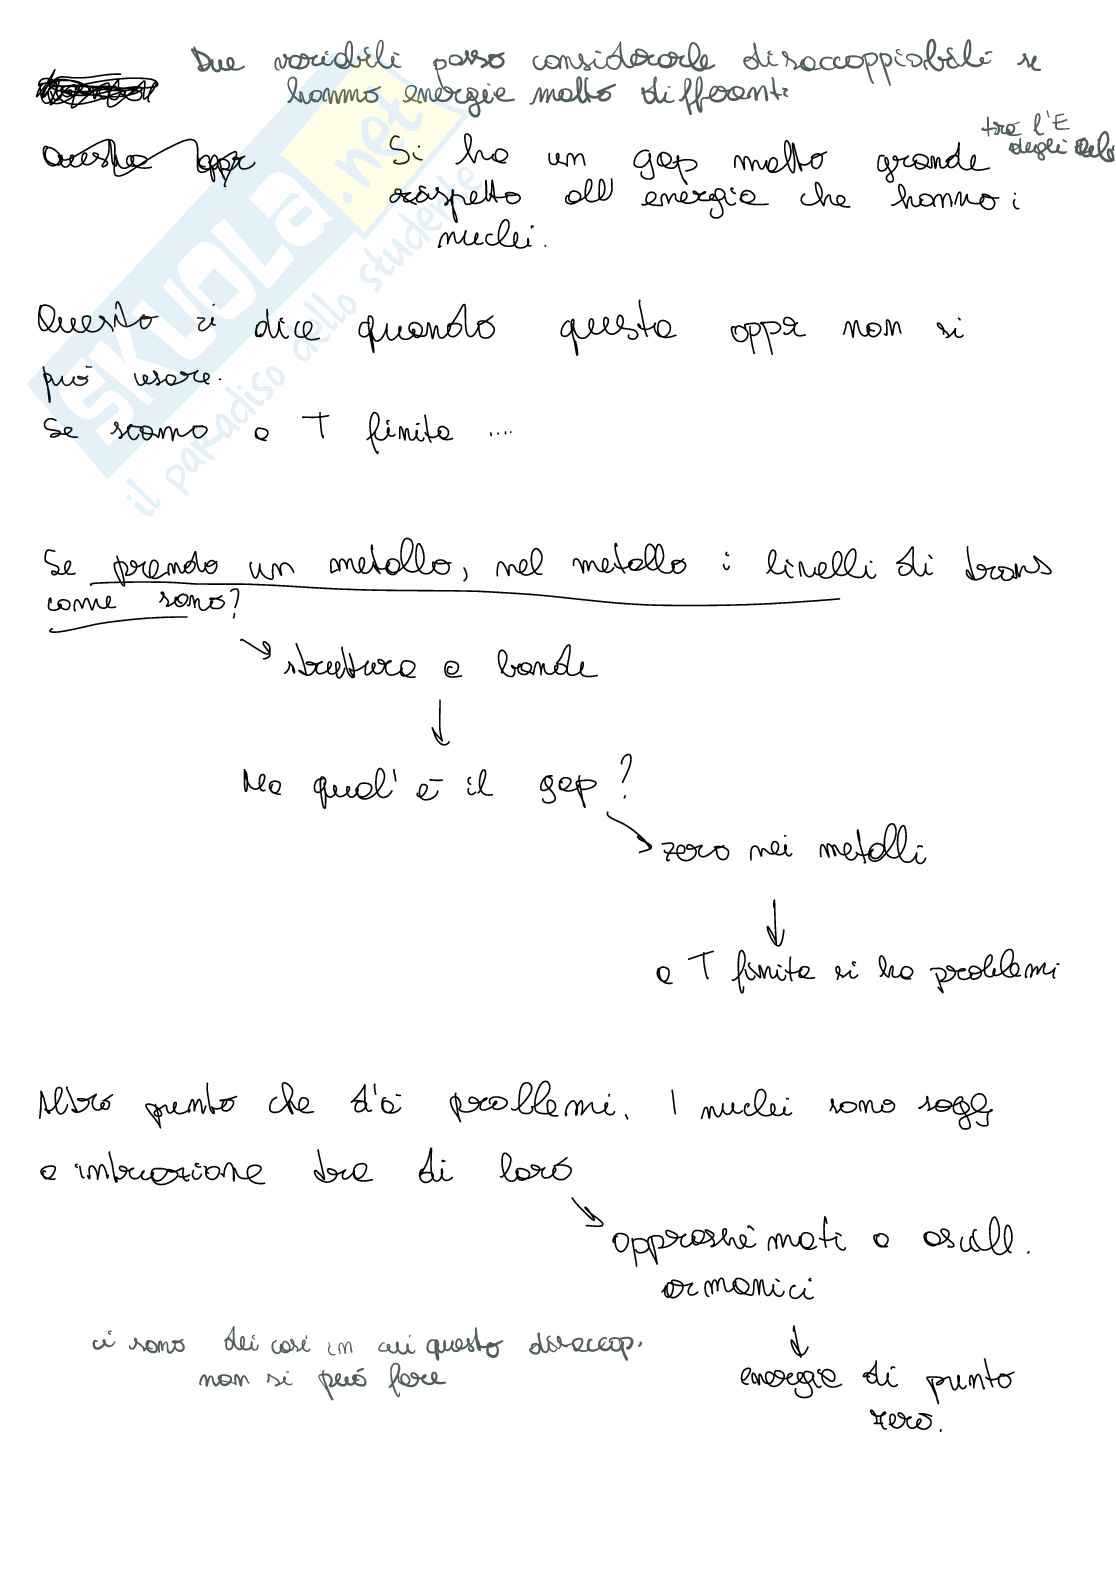 Due variabili posso considerarle disaccoppiabili se
hanno energie molto differenti
Questa appr
Si ha un gap molto grande
tra l'E
degli
rispetto all'energia che hanno i
nuclei.
Questo ci dice quando questa appr non si
può usare.
Se siamo a T finita ....
Se prendo un metallo, nel metallo i livelli di trans
come sono?
struttura a bande
Ma qual'è il gap?
zero nei metalli
a T finita si ha problemi
Altro punto che dà problemi. I nuclei sono sogg
a interazione tra di loro
approssimati a oscill.
armonici
ci sono dei casi in cui questo disaccop.
non si può fare
energia di punto
zero.
SKUOLA.net
il paradiso dello studente